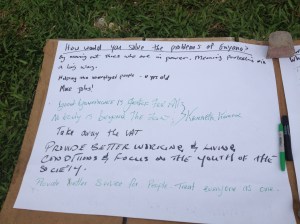 How would you solve the problems of Guyana?
By moving out those who are in power. Meaning
in a big way.
people
More jobs!
Good Governance is Justice For All
Nobody is beyond The
Take away the VAT
PROVIDE BETTER WORKING & LIVING
CONDITIONS & FOCUS ON THE YOUTH OF THE
SOCIETY.
Provide Better Service for People. Treat everyone as one.